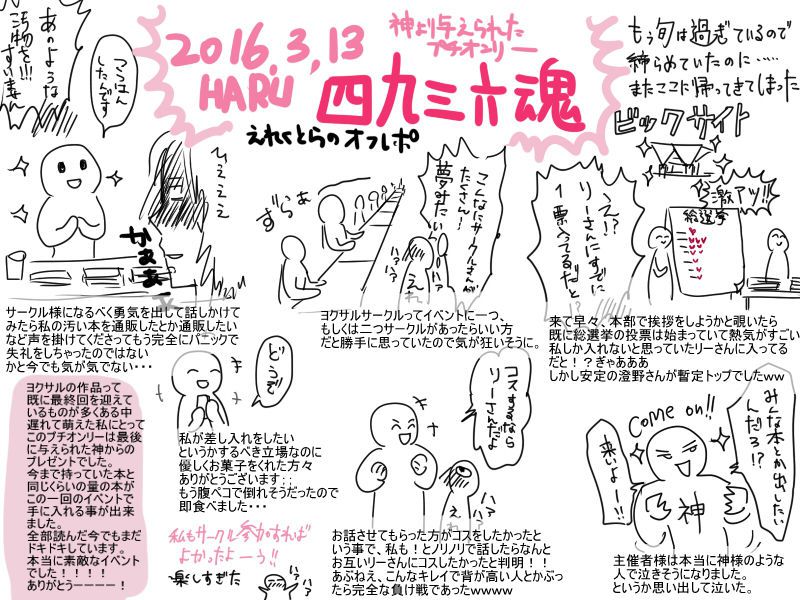 もう旬は過ぎているので
締らめていたのに……
またここに帰ってきてしまった
ビックサイト
神より与えられた
プチオンリー
2016.3.13
HARU
四九三六魂
えれくとらのオフレポ
激アツ!!
総選挙
え!?
リーさんにすでに
1票入ってるだと!?
来て早々、本部で挨拶をしようかと覗いたら
既に総選挙の投票は始まっていて熱気がすごい
私しか入れないと思っていたリーさんに入ってる
だと!?ぎゃあああ
しかし安定の澄野さんが暫定トップでしたww
こんなにサークルさんが
たくさん!
夢みたい
ずらぁ
ハァ?
ハァ?
えれ
ヨクサルサークルってイベントに一つ、
もしくは二つサークルがあったらいい方
だと勝手に思っていたので気が狂いそうに。
あのような
汚物を!!!
すいません
つうはん
したんです
ひええええ
かぁぁ
サークル様になるべく勇気を出して話しかけて
みたら私の汚い本を通販したとか通販したい
など声を掛けてくださってもう完全にパニックで
失礼をしちゃったのではない
かと今でも気が気でない・・・
みんな本とか出したい
んだろ!?
Come on!!
来いよー!!
神
主催者様は本当に神様のような
人で泣きそうになりました。
というか思い出して泣いた。
コスするなら
リーさんだよ
ハァ?
ハァ?
えれ
お話させてもらった方がコスをしたかったと
いう事で、私も!とノリノリで話したらなんと
お互いリーさんにコスしたかったと判明!!
あぶねえ、こんなキレイで背が高い人とかぶっ
たら完全な負け戦であったwwww
どうぞ
私が差し入れをしたい
というかするべき立場なのに
優しくお菓子をくれた方々
ありがとうございます;;
もう腹ペコで倒れそうだったので
即食べました・・・
私もサークル参加すれば
よかったよーう!!
楽しすぎた
ヨクサルの作品って
既に最終回を迎えて
いるものが多くある中
遅れて萌えた私にとって
このプチオンリーは最後
に与えられた神からの
プレゼントでした。
今まで持っていた本と
同じくらいの量の本が
この一回のイベントで
手に入れる事が出来
ました。
全部読んだ今でもまだ
ドキドキしています。
本当に素敵なイベント
でした!!!!
ありがとうーーーー!